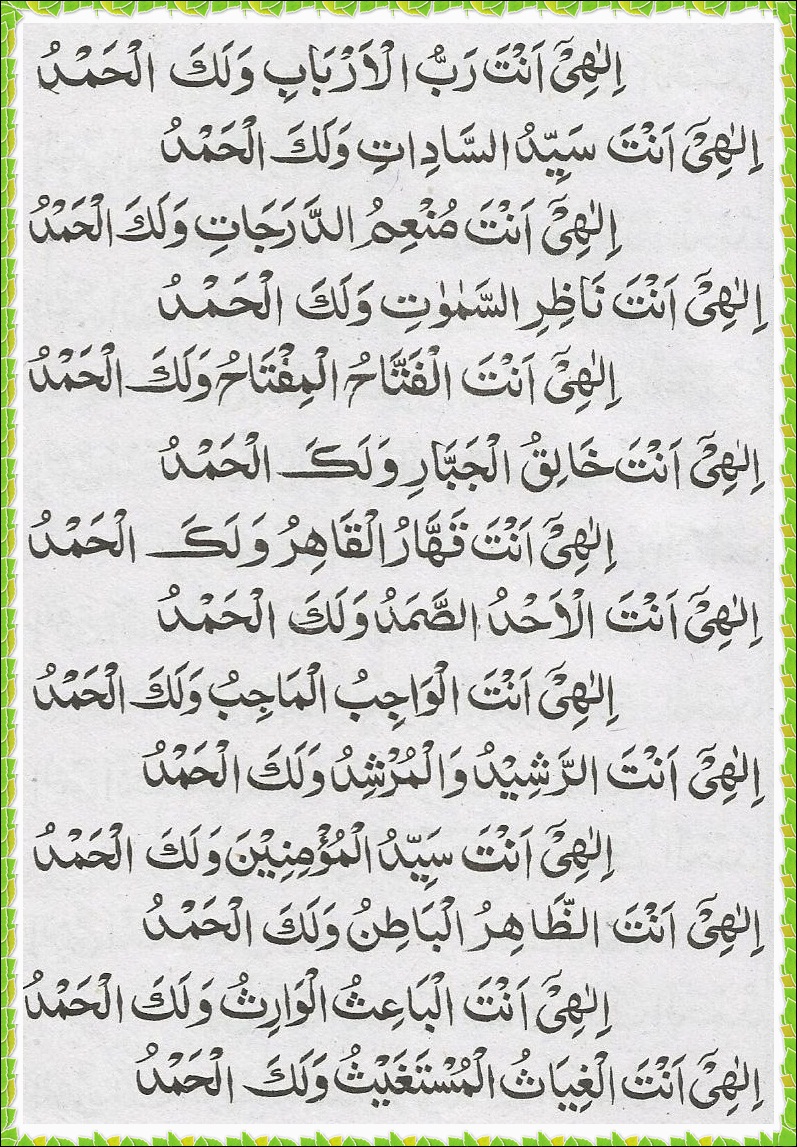 اِلٰهِیْٓ اَنْتَ رَبُّ الْاَرْبَابِ وَلَكَ الْحَمْدُ
اِلٰهِیْٓ اَنْتَ سَيِّدُ السَّادَاتِ وَلَكَ الْحَمْدُ
اِلٰهِیْٓ اَنْتَ مُنْعِمُ الدَّرَجَاتِ وَلَكَ الْحَمْدُ
اِلٰهِیْٓ اَنْتَ نَاظِرِ السَّمٰوٰتِ وَلَكَ الْحَمْدُ
اِلٰهِیْٓ اَنْتَ الْفَتَّاحُ الْمِفْتَاحُ وَلَكَ الْحَمْدُ
اِلٰهِیْٓ اَنْتَ خَالِقُ الْجَبَّارِ وَلَكَ الْحَمْدُ
اِلٰهِیْٓ اَنْتَ قَهَّارُ الْقَاهِرُ وَلَكَ الْحَمْدُ
اِلٰهِیْٓ اَنْتَ الْاَحْدُ الصَّمَدُ وَلَكَ الْحَمْدُ
اِلٰهِیْٓ اَنْتَ الْوَاجِبُ الْمَاجِبُ وَلَكَ الْحَمْدُ
اِلٰهِیْٓ اَنْتَ الرَّشِيْدُ وَالْمُرْشِدُ وَلَكَ الْحَمْدُ
اِلٰهِیْٓ اَنْتَ سَيِّدُ الْمُؤْمِنِيْنَ وَلَكَ الْحَمْدُ
اِلٰهِیْٓ اَنْتَ الظَّاهِرُ الْبَاطِنُ وَلَكَ الْحَمْدُ
اِلٰهِیْٓ اَنْتَ الْبَاعِثُ الْوَارِثُ وَلَكَ الْحَمْدُ
اِلٰهِیْٓ اَنْتَ الْغِيَاثُ الْمُسْتَغَيْثُ وَلَكَ الْحَمْدُ